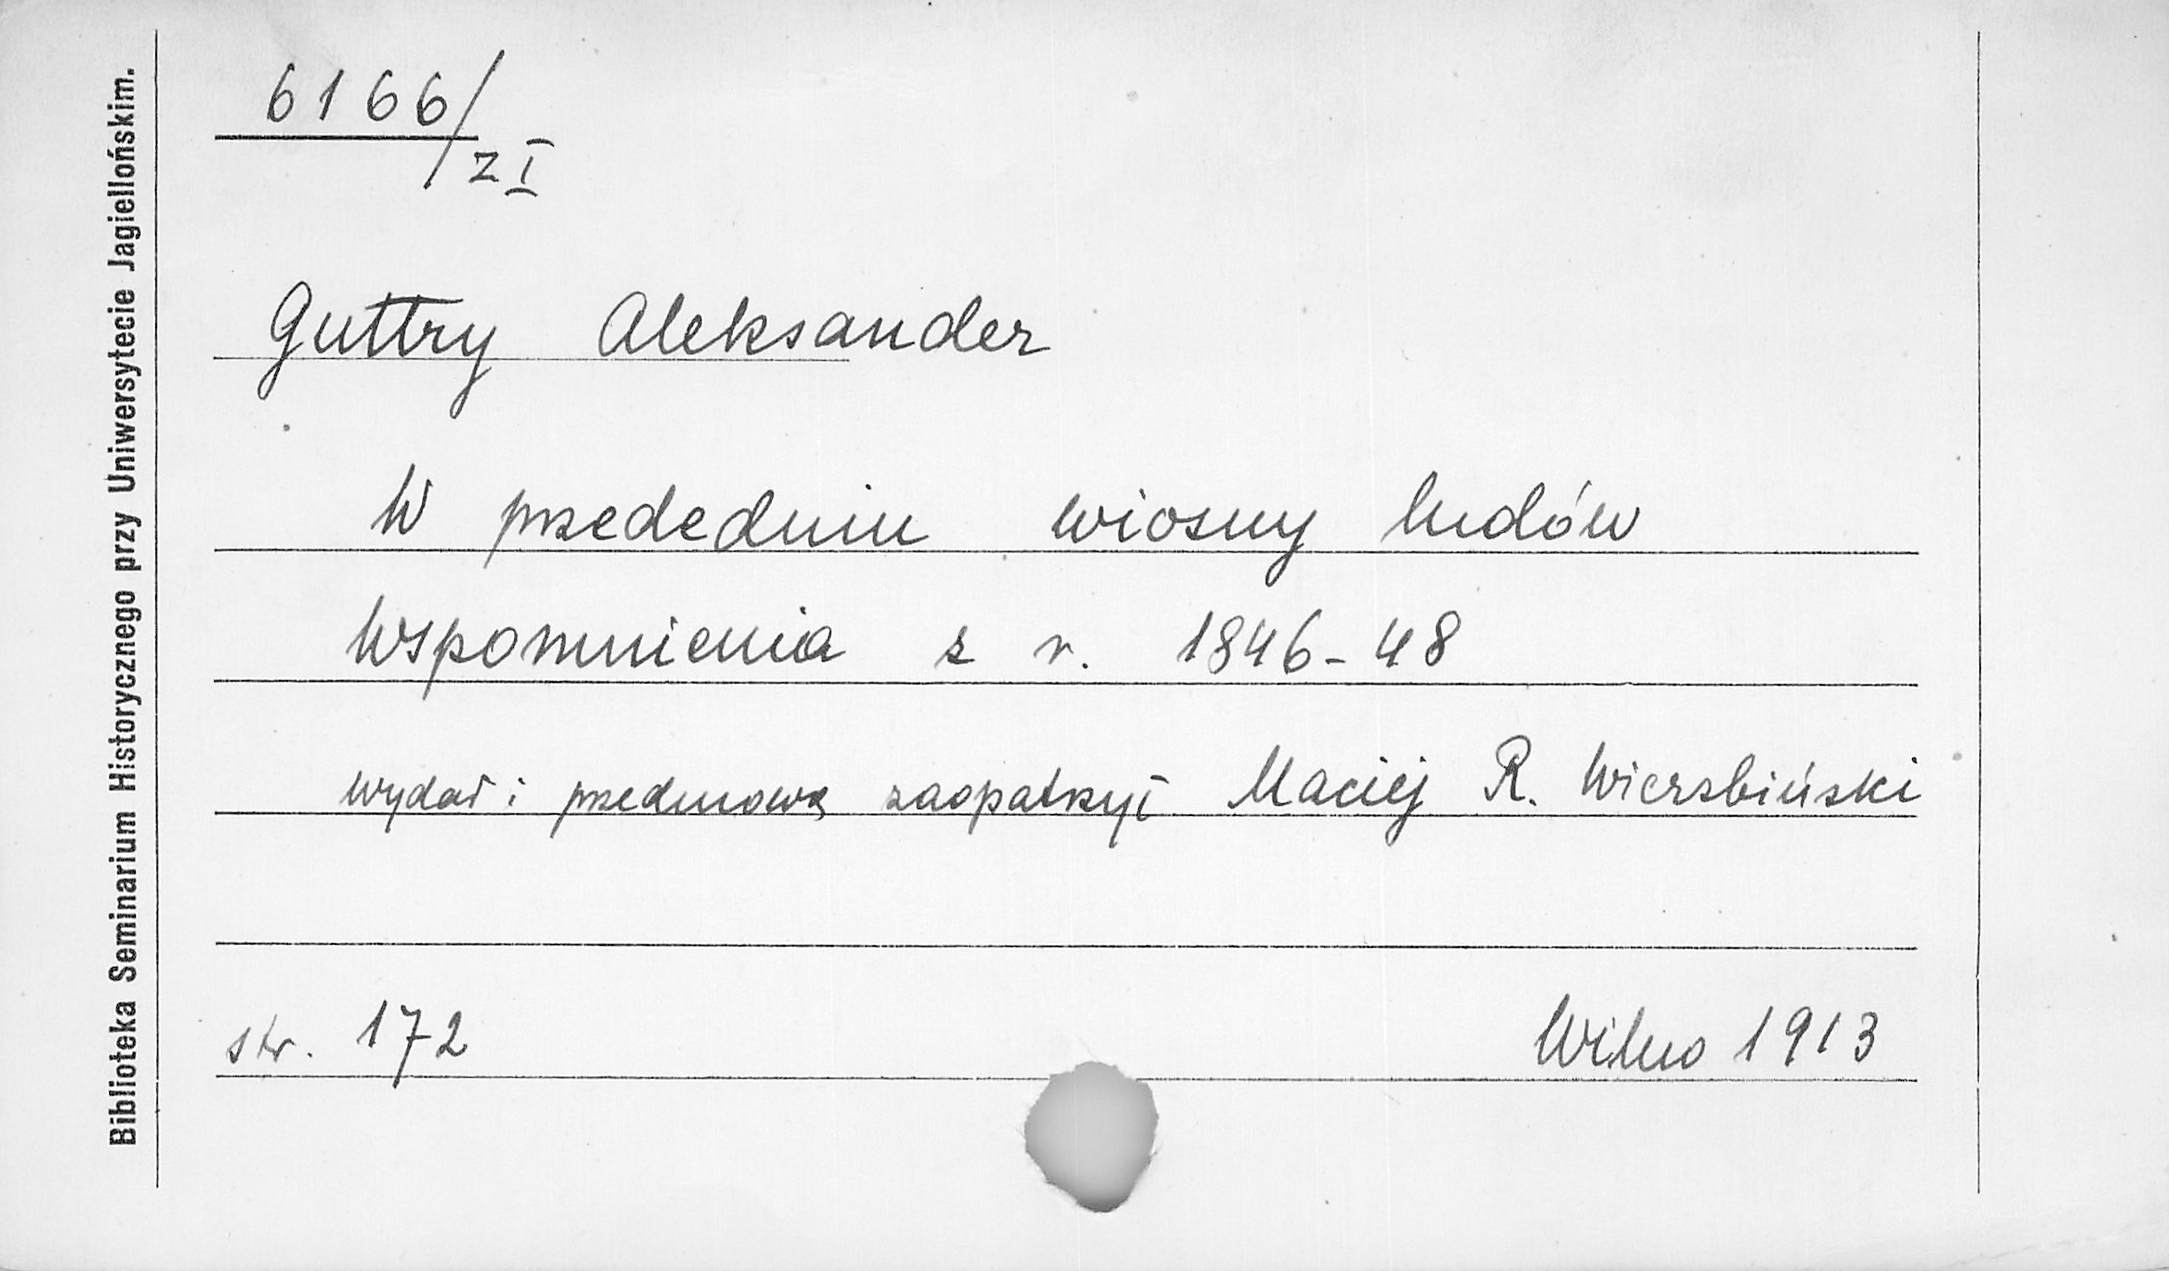 Biblioteka Seminarium Historycznego przy Uniwersytecie Jagiellońskim.
6166/
z I
Guttry Aleksander
W przededniu wiosny ludów
Wspomnienia z r. 1846-48
wydał i przedmową zaopatrzył Maciej R. Wierzbiński
str. 172
Wilno 1913